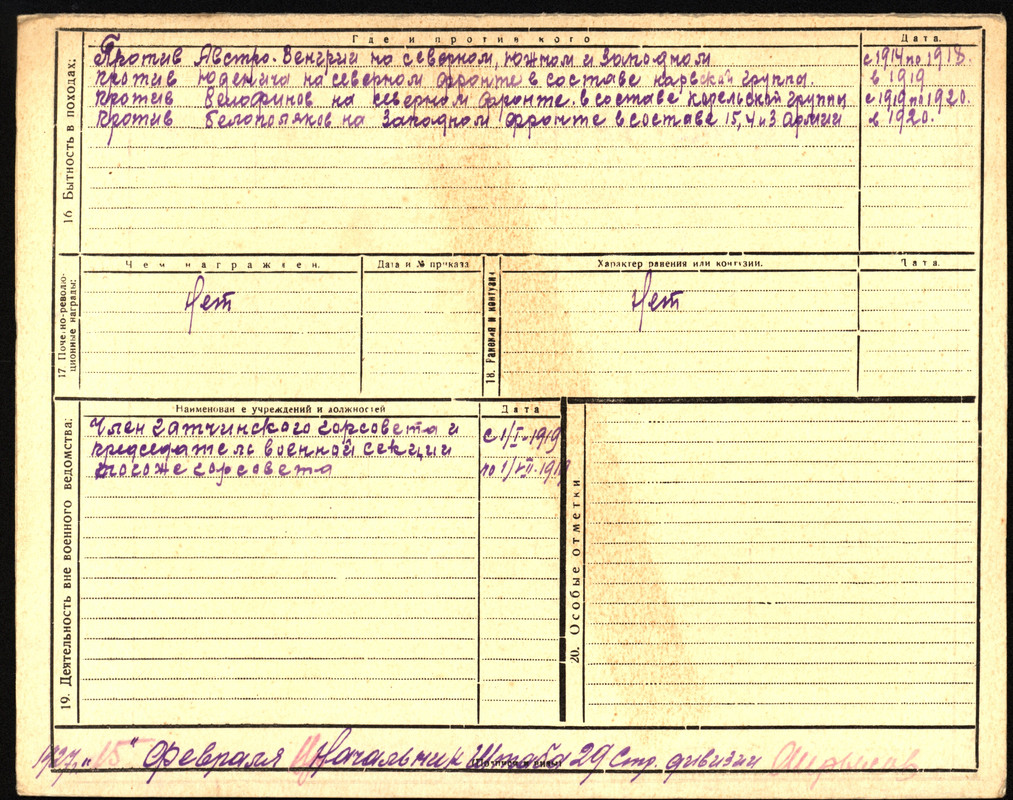 Где и против кого
Дата.
16 Бытность в походах:
Против Австро-Венгрии на северном, южном и Западном
с 1914 по 1918.
против Юденича на северном фронте в составе нарвской группы
в 1919
против Белофинов на северном фронте в составе карельской группы
с 1919 по 1920.
против белополяков на Западном фронте в составе 15, 4 и 3 армии
в 1920.
Чем награжден.
Дата и № приказа
Характер ранения или контузии.
Дата.
17 Почетно-революционные награды:
Нет
18. Ранения и контузии
Нет
Наименование учреждений и должностей
Дата
19. Деятельность вне военного ведомства:
Член Гатчинского горсовета и
с 1/I-1919
председатель военной секции
тогоже горсовета
по 1/VII-1919
20. Особые отметки
1927 „15" февраля Начальник Штаба 29 Стр. дивизии